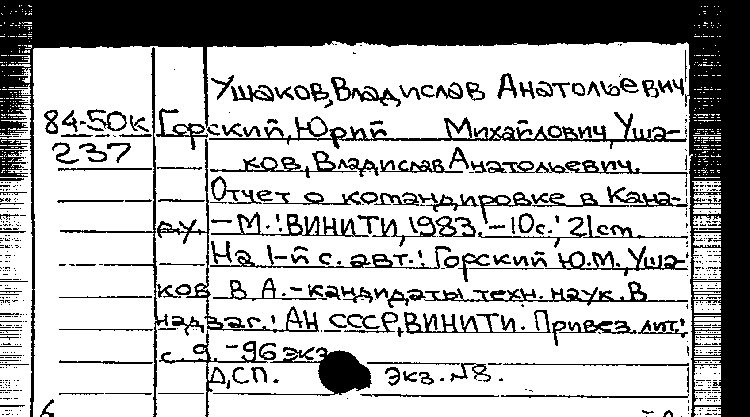 Ушаков, Владислав Анатольевич
84-50к Горский, Юрий Михайлович, Уша-
237 ков, Владислав Анатольевич.
Отчет о командировке в Кана-
ду. - М.: ВИНИТИ, 1983. - 10с.; 21 cm.
На 1-й с. авт.: Горский Ю.М., Уша-
ков В А. - кандидаты техн. наук. В
надзаг.: АН СССР, ВИНИТИ. Привез. лит.:
с. 9. - 96 экз
Д,СП. Экз. N8.